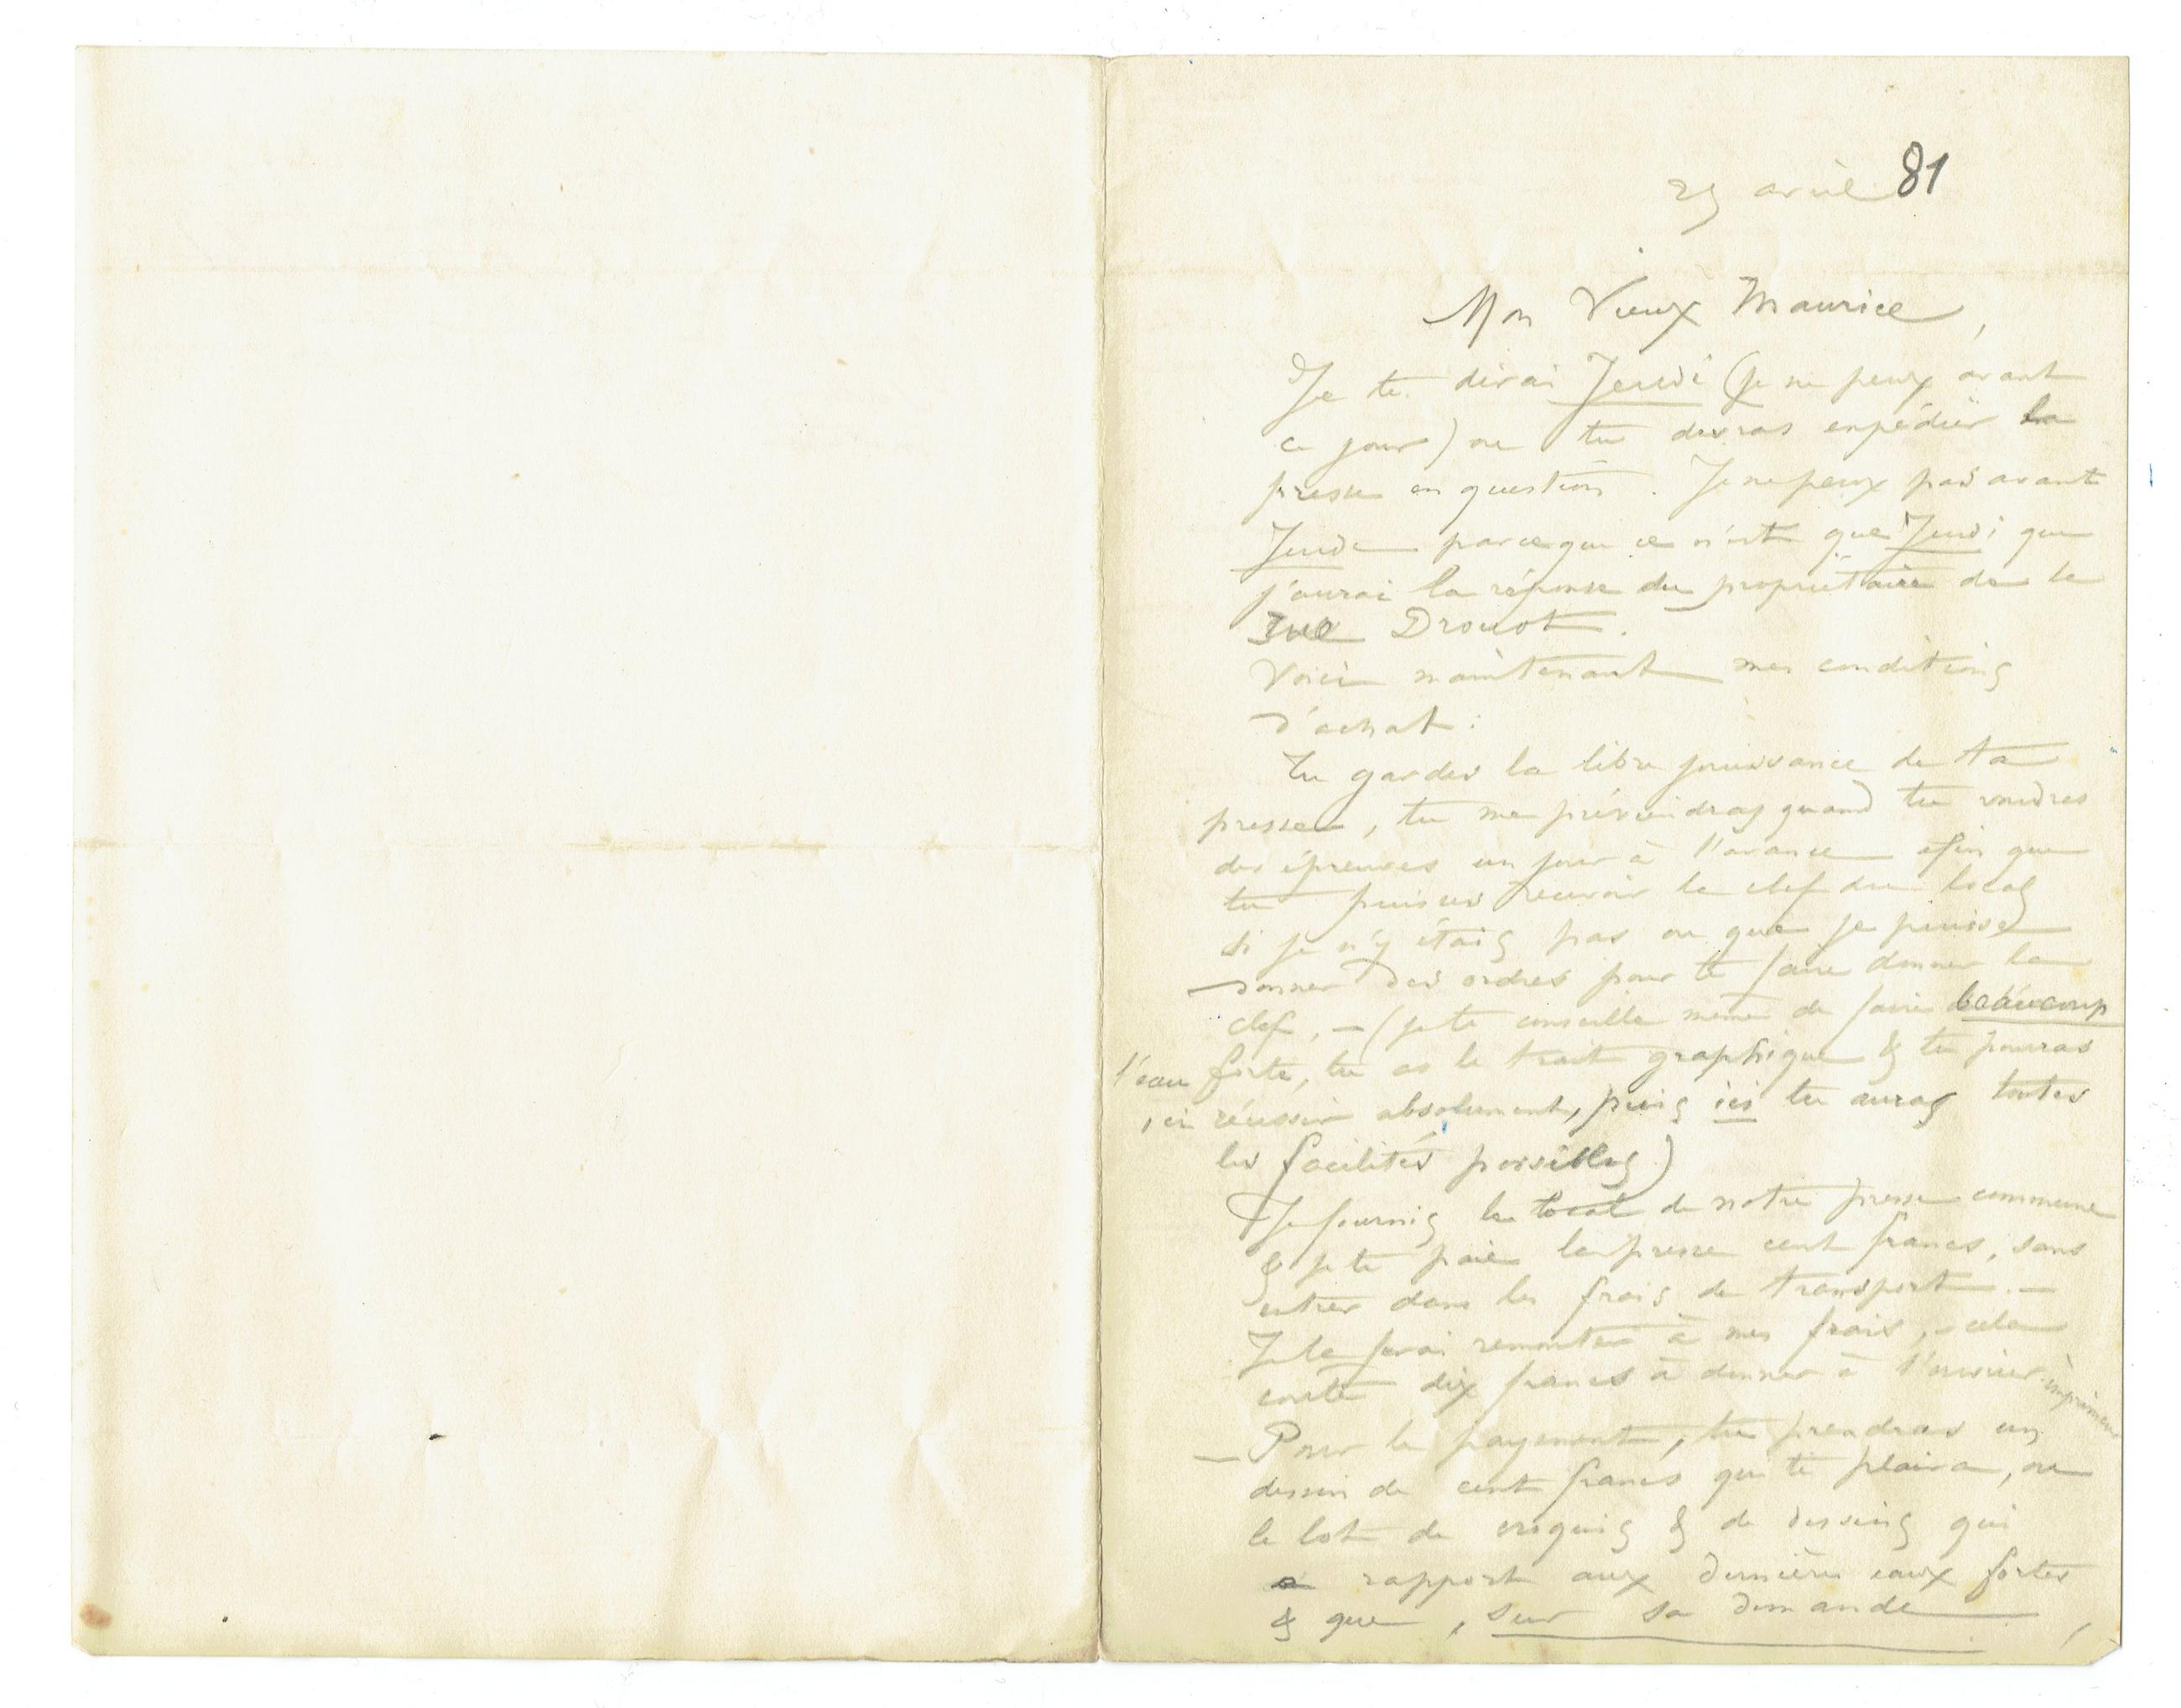 25 avril 81
Mon Vieux Maurice,
Je te dirai Jeudi (je ne peux avant
ce jour) ou tu devras expédier la
presse en question. Je ne peux pas avant
Jeudi parceque ce n'est que Jeudi que
j'aurai la réponse du propriétaire de la
rue Drouot.
Voici maintenant mes conditions
d'achat :
Tu gardes la libre jouissance de ta
presse, tu me préviendras quand tu voudras
des épreuves un jour à l'avance afin que
tu puisses recevoir la clef du local
si je n'y étais pas ou que je puisse
donner des ordres pour te faire donner la
clef, — (je te conseille même de faire beaucoup
l'eau forte, tu as le trait graphique & tu pourras
, en réussir absolument, puis ici tu auras toutes
les facilités possibles)
Je fournis le local de notre presse commune
& je te paie la presse cent francs, sans
entrer dans les frais de transport. —
Je la ferai remonter à mes frais, cela
coute dix francs à donner à l'ouvrier imprimeur
— Pour le payement, tu prendras un
dessin de cent francs qui te plaira, ou
le lot de croquis & de dessins qui
a rapport aux dernières eaux fortes
& que, sur sa demande,